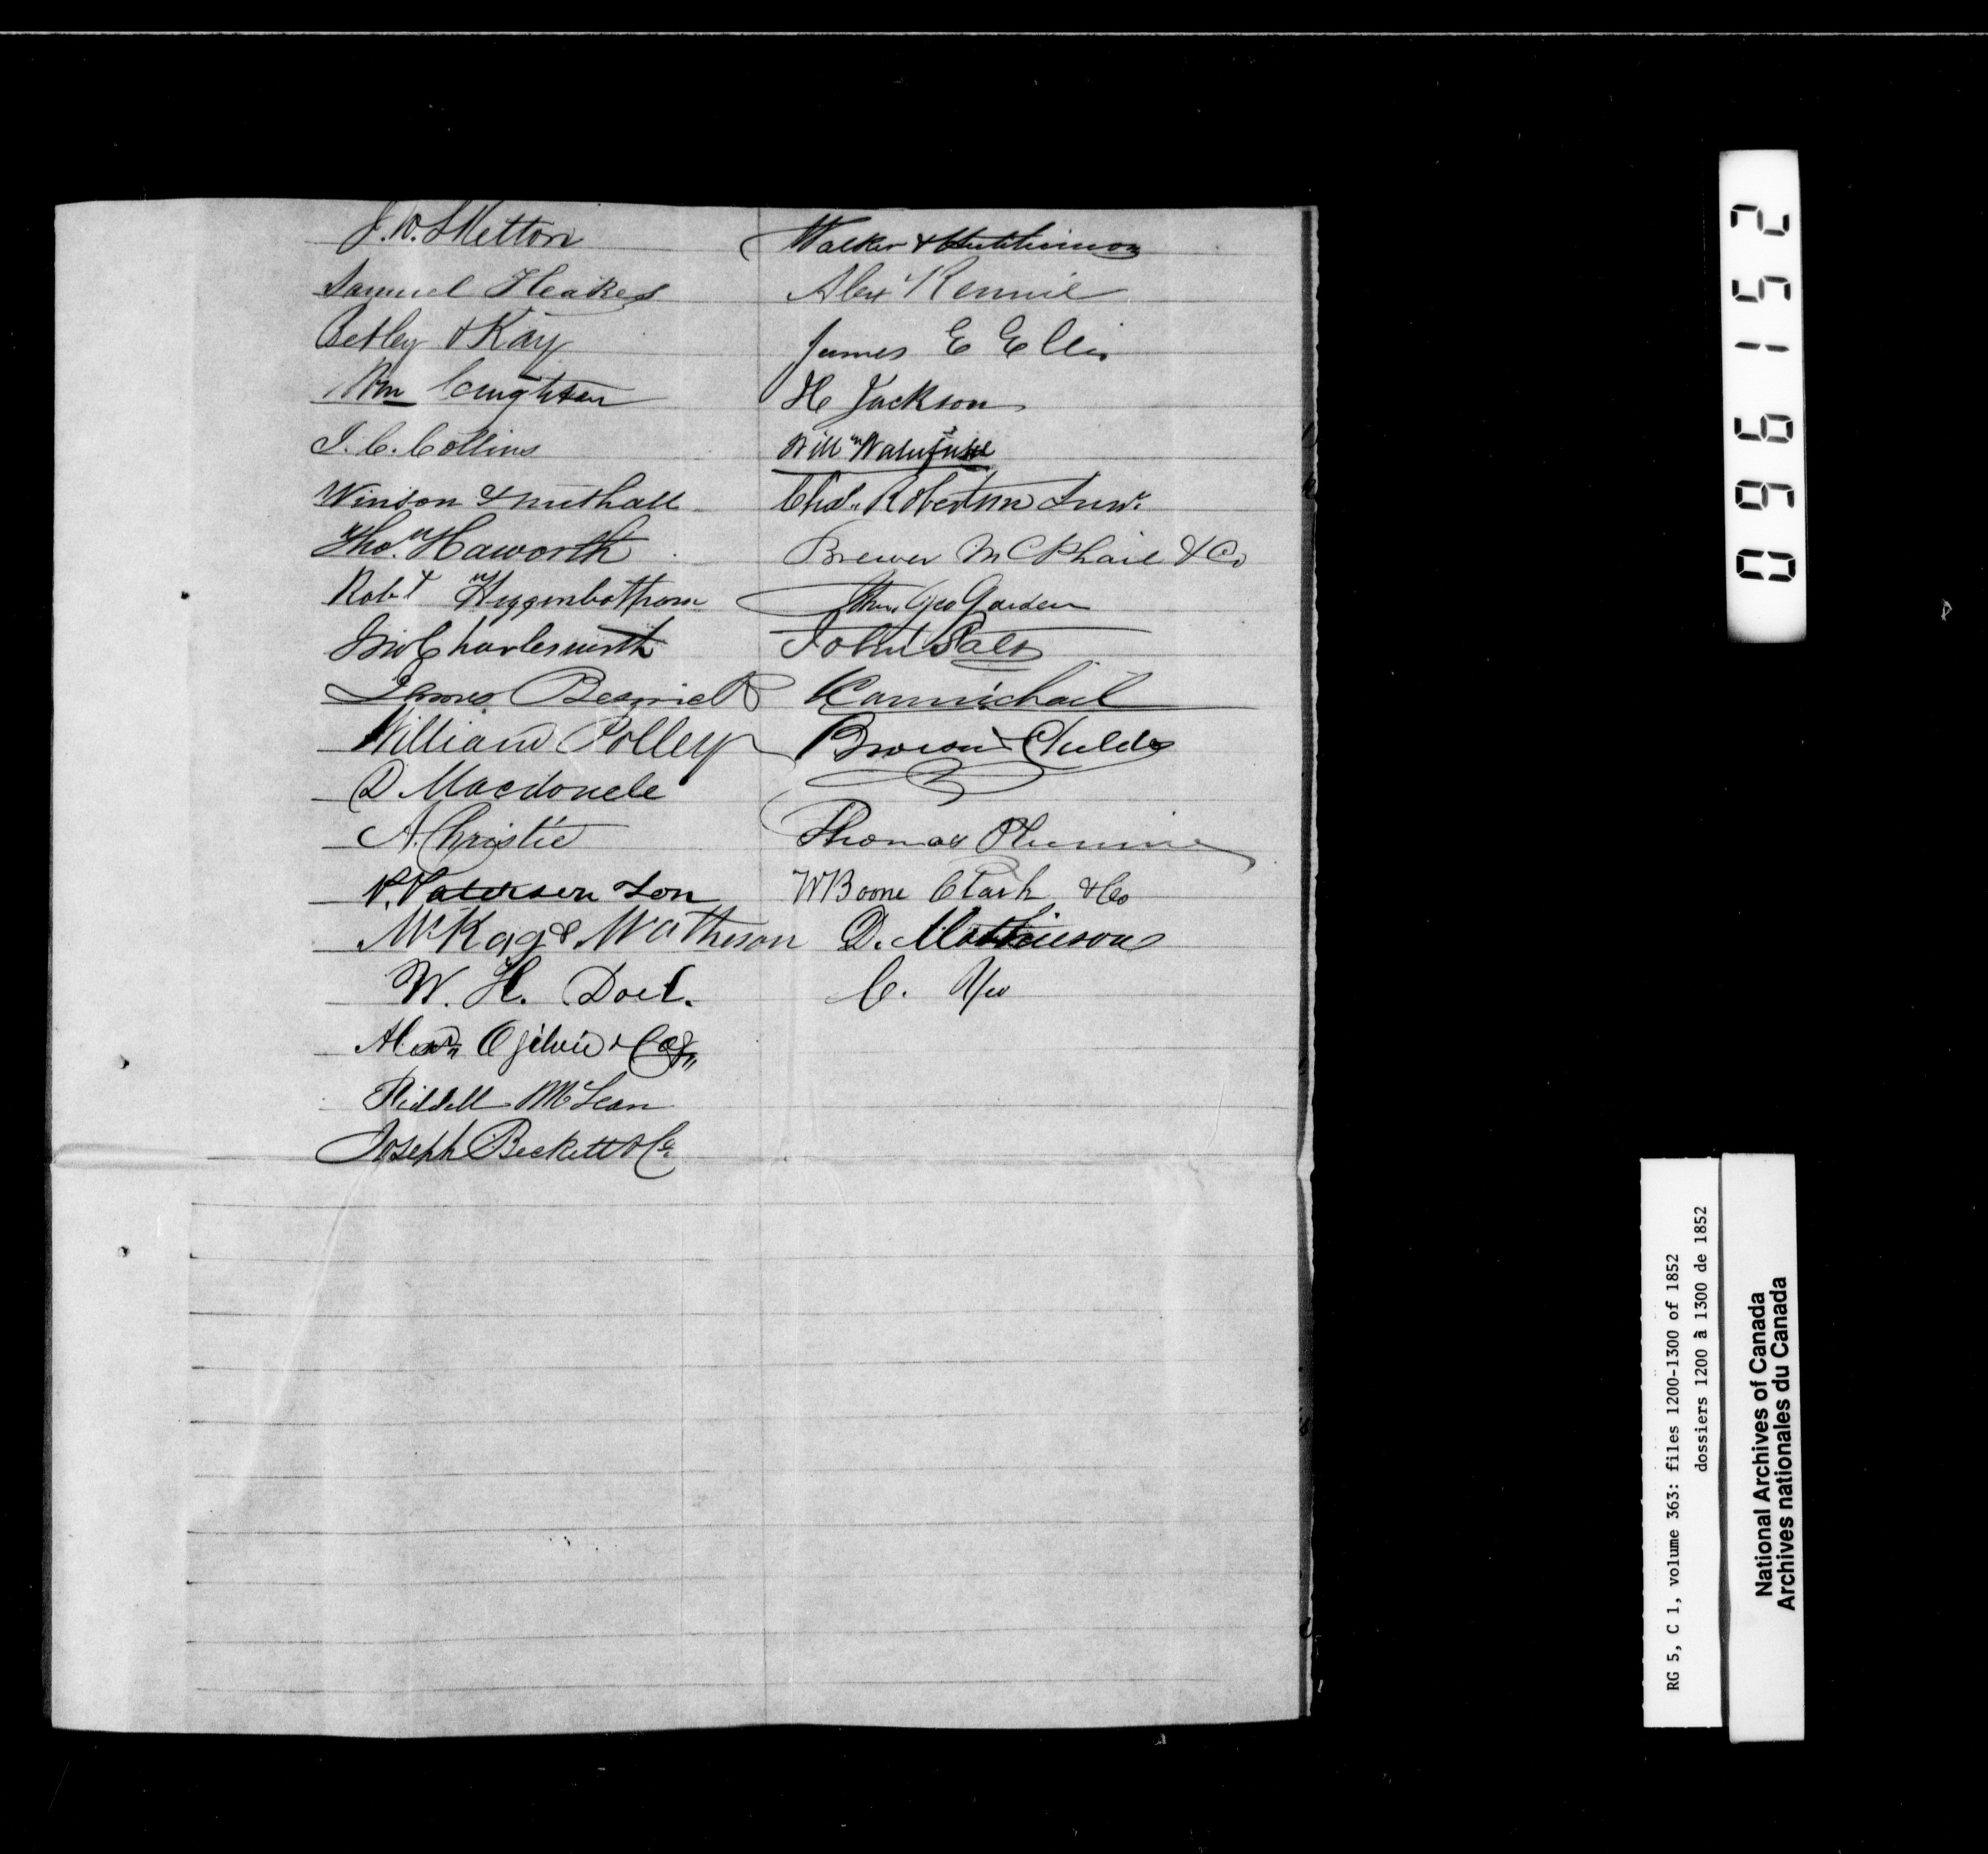 J. W. Skelton
Samuel Heakes
Betley & Kay
Wm Coughten
J. C. Collins
Winson & Nuthall
Thos. Haworth
Robt Higginbotham
Jno Charlesworth
James Beaznell
William Polley
D. Macdonell
A. Christie
P. Paterson & Son
McKay & Matheson
W. H. Doel.
Alexr. Ogilvie & Co
Riddell McLean
Joseph Beckett & Co.
Walker & Hutchinson
Alexr Rennie
James E Ellis
H Jackson
Willm
Chas. Robertson Junr.
Brewer McPhail & Co
Geo Garden
John Salt
Carmichael
Brown & Childs
Thomas
W Boone Clark & Co
D. Mathieson
C. Yeo
096152
RG 5, C 1, volume 363: files 1200-1300 of 1852
dossiers 1200 à 1300 de 1852
National Archives of Canada
Archives nationales du Canada